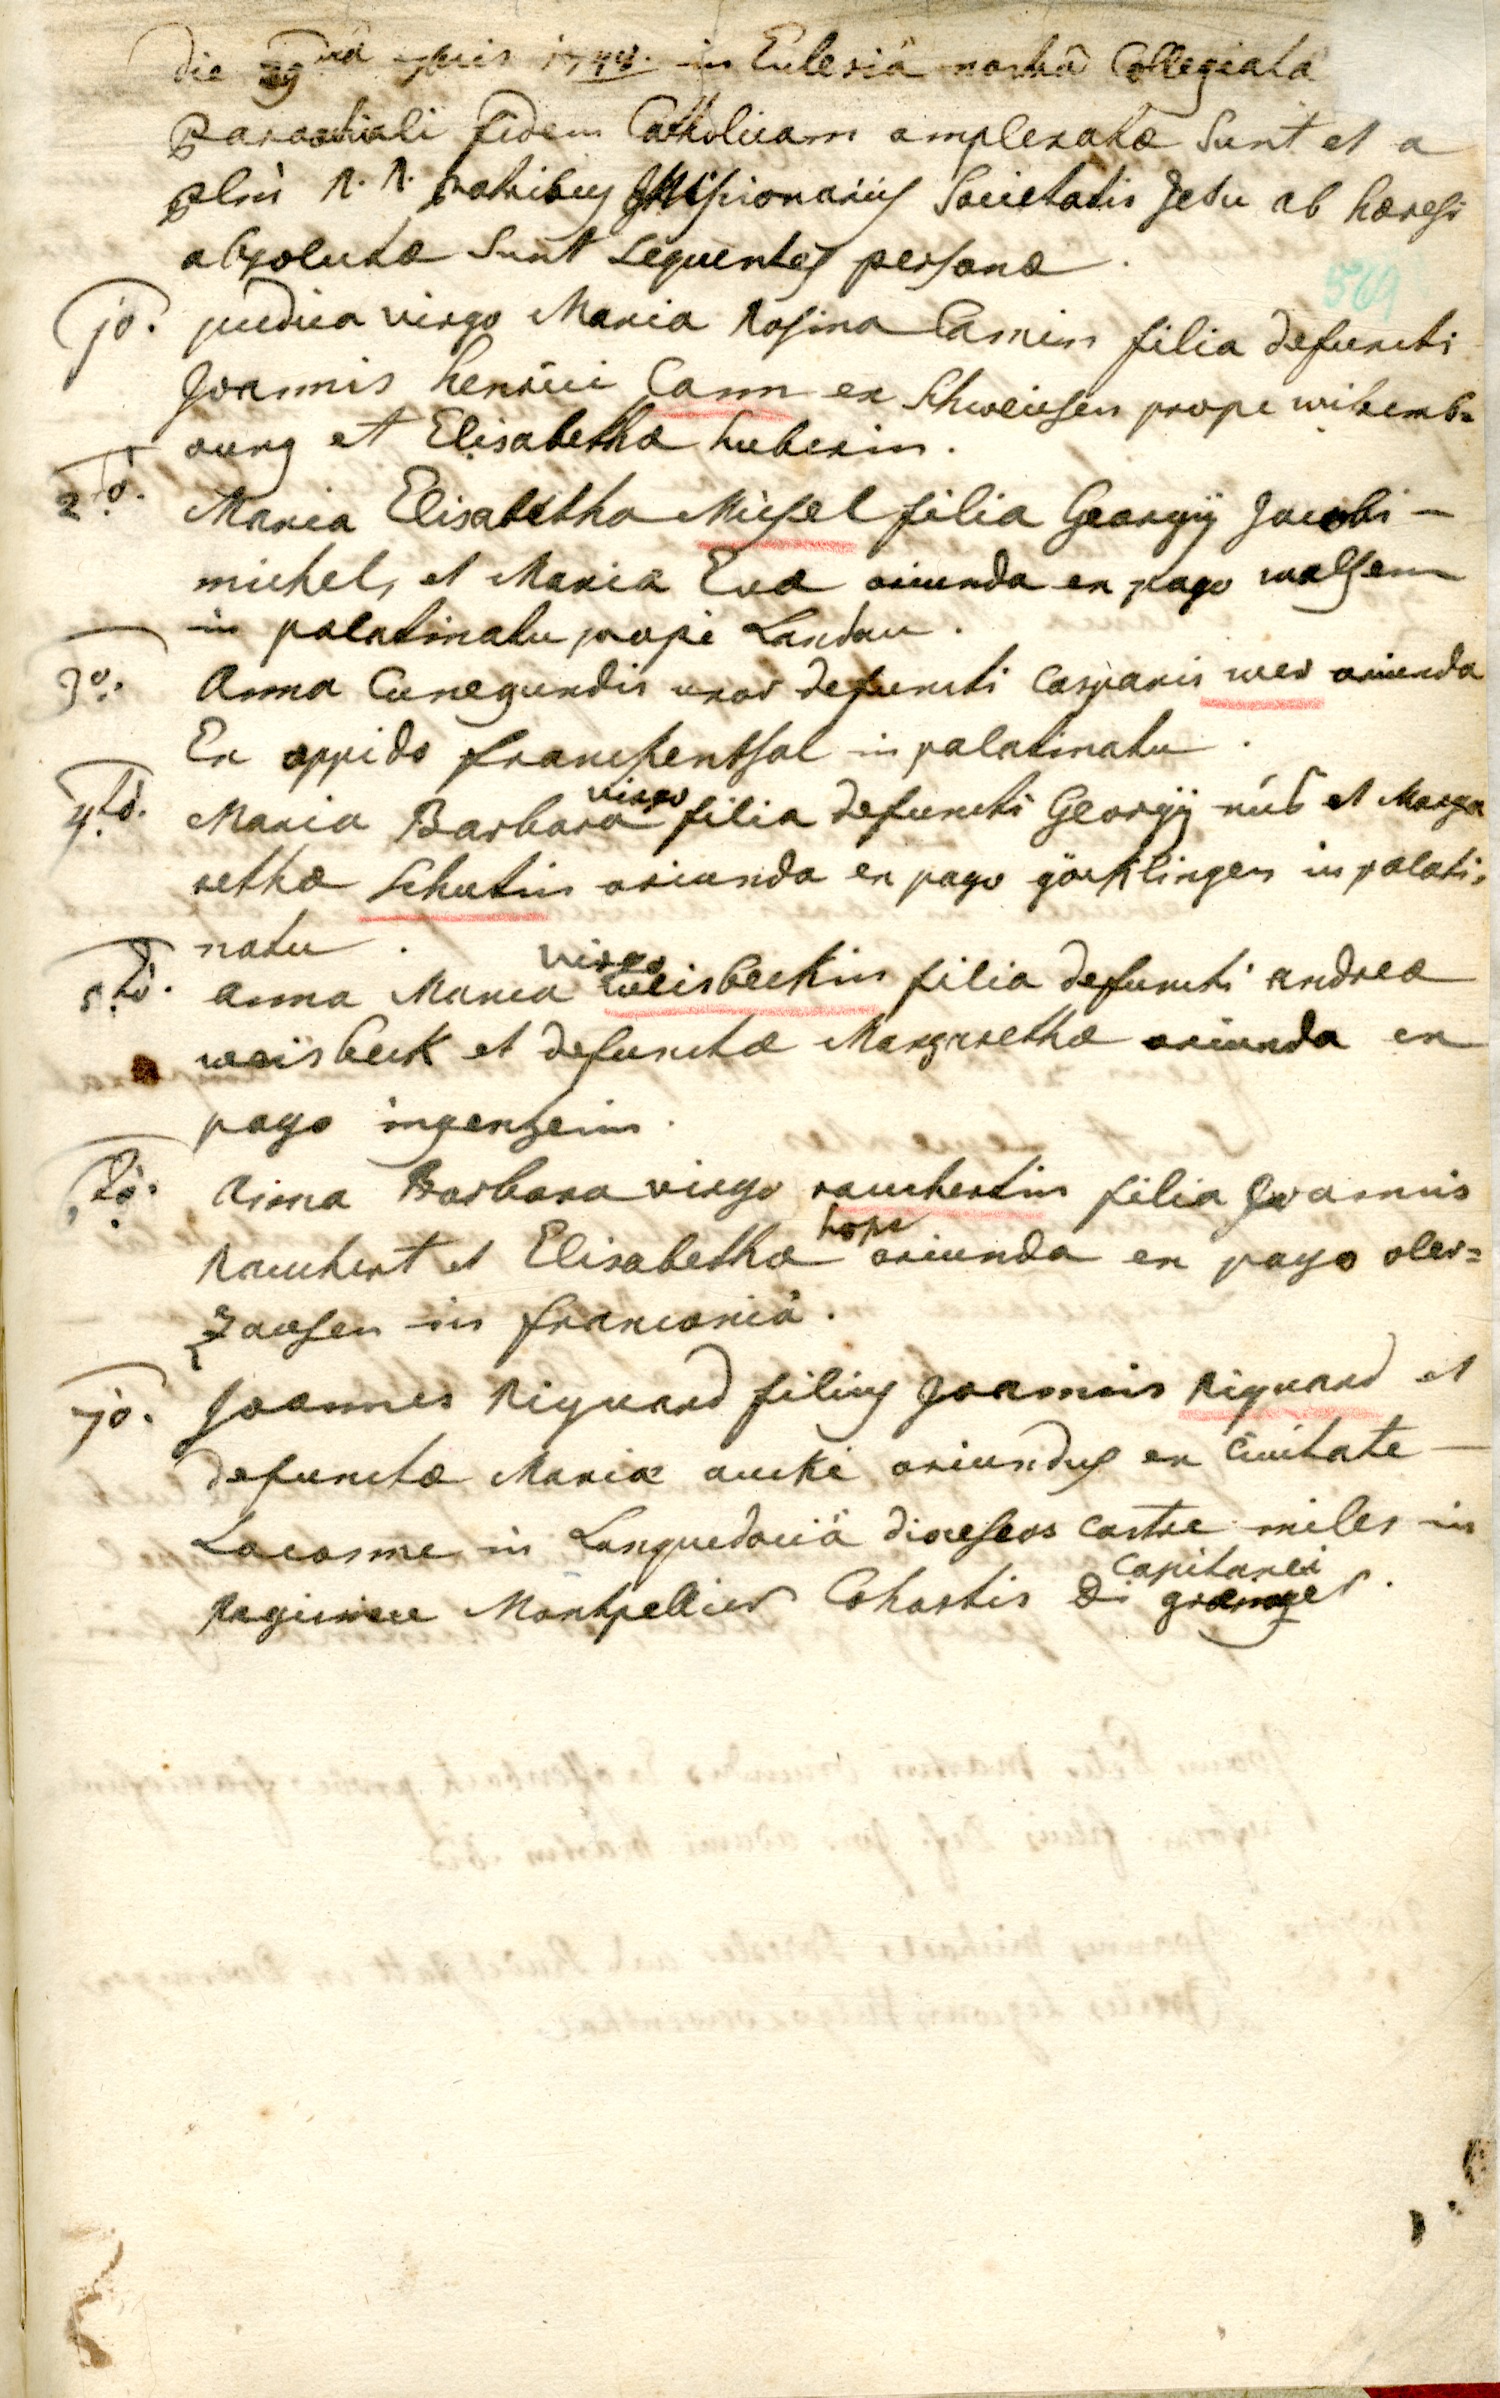 die 29na 9bris 1744. in Eclesiâ nostrâ Collegiatâ
Parochiali fidem Catholicam amplexatæ Sunt et a
plris R. R. patribus Missionariis Societatis Jesu ab hæresi
absolutæ Sunt sequentes personæ.
569
1o. pudica virgo Maria Rosina Camin filia defuncti
Joannis henrici Cam ex Schweigen prope wisemb=
ourg et Elisabethæ huberin.
2do. Maria Elisabetha Michel filia Georgÿ Jacobi –
michel, et Mariæ Evæ oriunda ex pago walsem
in palatinatu prope Landau.
3o. Anna Cunegundis uxor defuncti Casparis wer oriunda
Ex oppido franckenthal in palatinatu.
virgo
4to. Maria Barbara filia defuncti Georgÿ et Marga
rethæ Schutin oriunda ex pago göcklingen in palati=
natu.
virgo
5to. Anna Maria weisbeckin filia defuncti Andreæ
weisbeck et defunctæ Margarethæ oriunda ex
pago ingenheim.
to. Anna Barbara virgo rauchertin filia Joannis
hope
Rauchert et Elisabethæ oriunda ex pago ober=
zausen in franconiâ.
7o. Joannes Riguard filius Joannis Riguard et
defunctæ Mariæ aucke oriundus ex Civitate –
Lacosme in Languedociâ dioeseos castre miles in
Capitanei
Regimine Montpellier Cohortis Di granger.